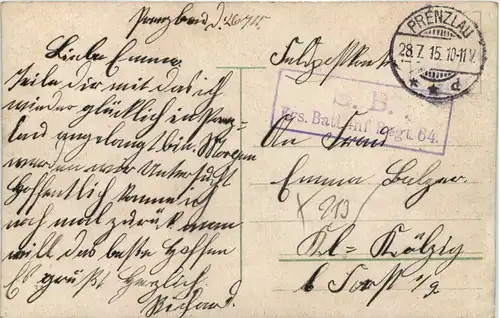 Prenzlau d. 26.7.15.
Liebe Emma
Teile Dir mit das ich
wieder glücklich in Prenz-
lau angelangt bin. Morgen
werden wir Untersucht
Hoffentlich komme ich
noch mal zurück man
will das beste hoffen
Es grüßt Herzlich
Richard.
Feldpostkarte
PRENZLAU
28.7.15.10-11V.
* * d
S. B.
Ers. Batl. Inf. Regt. 64.
An Frau
Emma Balzer
X 213
Kl-Kölzig
b Forst i/g.